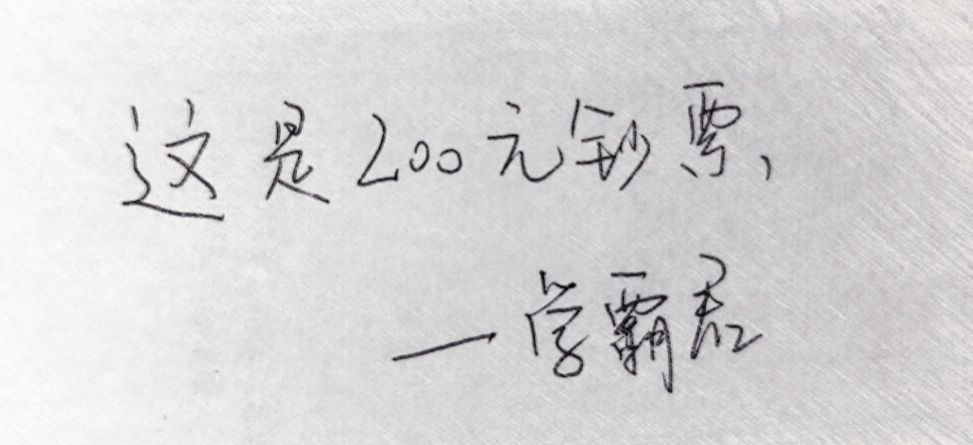 这是200元钞票、
—学霸君